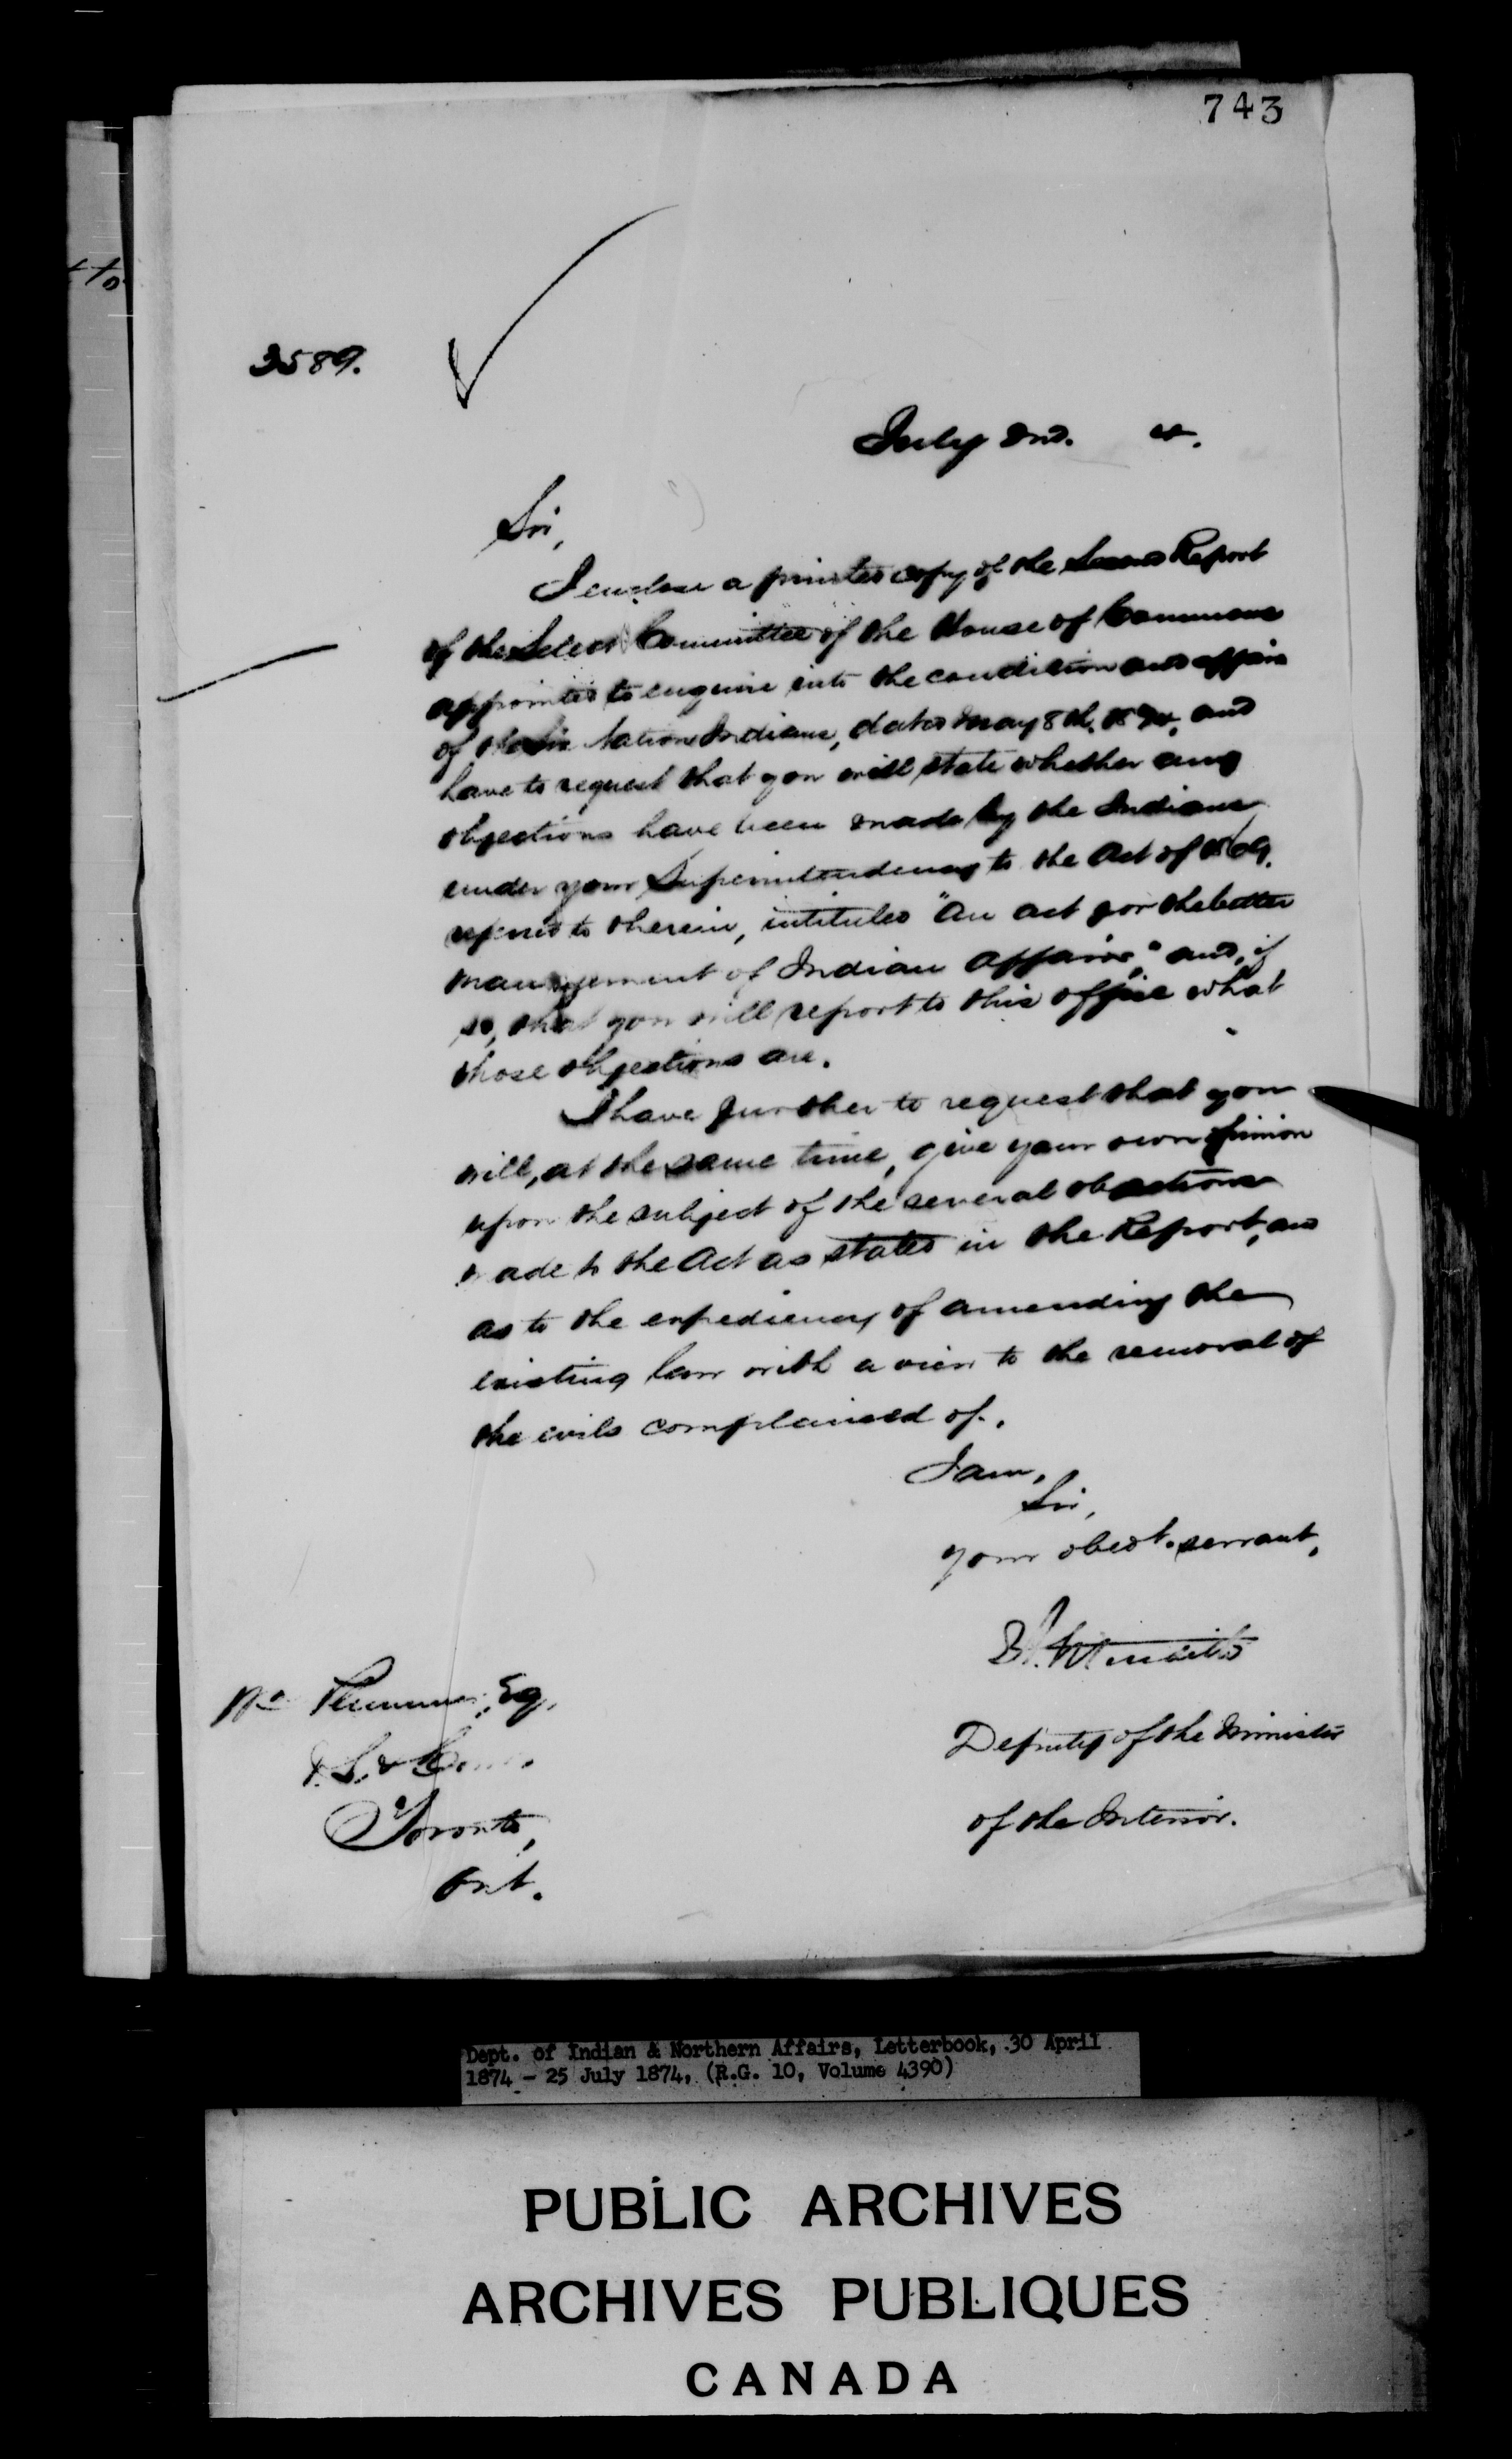 743
3589.
July 2nd. 4.
Sir,
I enclose a printed copy of the Second Report
of the Select Committee of the House of Commons
appointed to enquire into the condition and affairs
of the Six Nation Indians, dated May 8th. 1874, and
have to request that you will state whether any
objections have been made by the Indians
under your Superintendency to the Act of 1869.
referred to therein, intituled "An act for the better
management of Indian Affairs," and, if
so, that you will report to this office what
those objections are.
I have further to request that you
will, at the same time, give your own opinion
upon the subject of the several objections
made to the Act as stated in the Report, and
as to the expediency of amending the
existing law with a view to the removal of
the evils complained of.
I am,
Sir,
your obedt. servant,
Wm Plummer, Esq,
Deputy of the Minister
of the Interior.
Toronto,
Ont.
Dept. of Indian & Northern Affairs, Letterbook, 30 April
1874 - 25 July 1874, (R.G. 10, Volume 4390)
PUBLIC ARCHIVES
ARCHIVES PUBLIQUES
CANADA